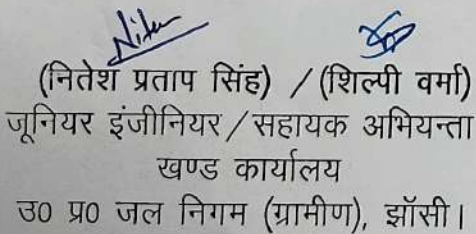 (नितेश प्रताप सिंह) / (शिल्पी वर्मा)
जूनियर इंजीनियर / सहायक अभियन्ता
खण्ड कार्यालय
उ0 प्र0 जल निगम (ग्रामीण), झॉसी।